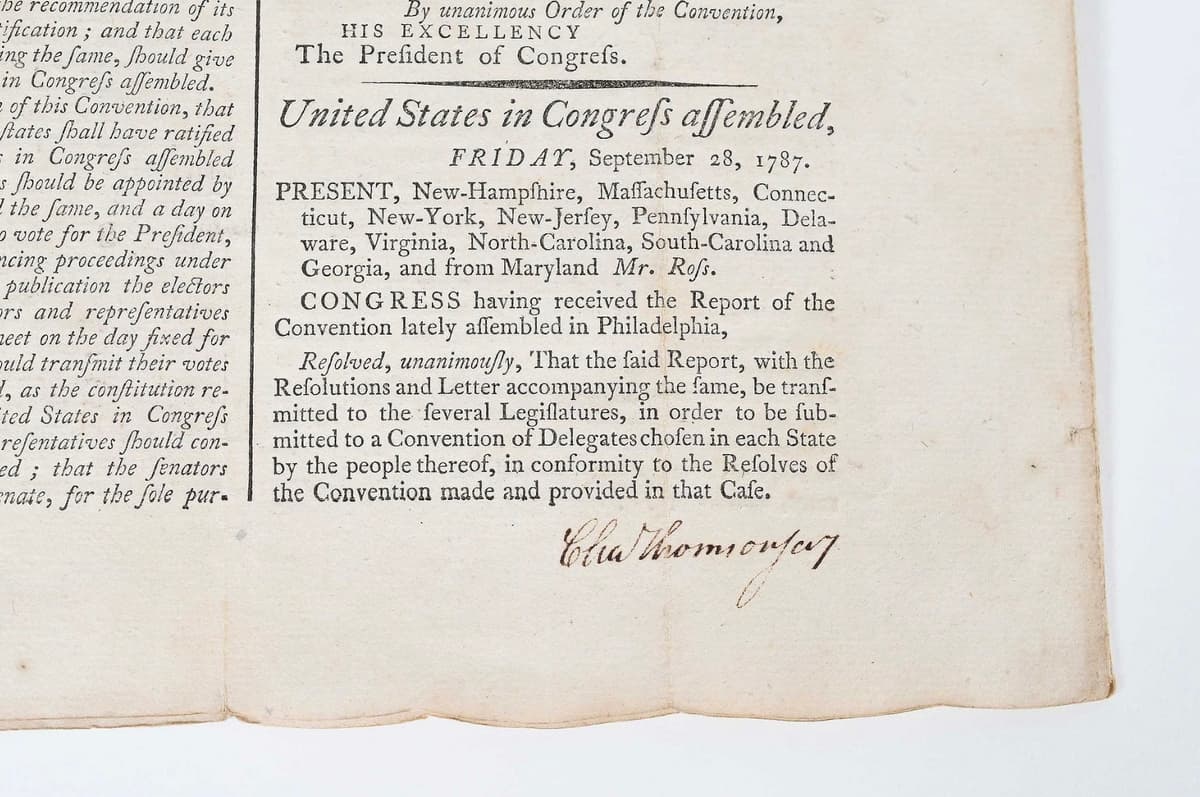 he recommendation of its
tification ; and that each
ing the ſame, ſhould give
in Congreſs aſſembled.
of this Convention, that
ſtates ſhall have ratified
in Congreſs aſſembled
s ſhould be appointed by
the ſame, and a day on
o vote for the Preſident,
ncing proceedings under
publication the electors
ors and repreſentatives
meet on the day fixed for
ould tranſmit their votes
d, as the conſtitution re-
ited States in Congreſs
reſentatives ſhould con-
ed ; that the ſenators
enate, for the ſole pur-
By unanimous Order of the Convention,
HIS EXCELLENCY
The Preſident of Congreſs.
United States in Congreſs aſſembled,
FRIDAY, September 28, 1787.
PRESENT, New-Hampſhire, Maſſachuſetts, Connec-
ticut, New-York, New-Jerſey, Pennſylvania, Dela-
ware, Virginia, North-Carolina, South-Carolina and
Georgia, and from Maryland Mr. Roſs.
CONGRESS having received the Report of the
Convention lately aſſembled in Philadelphia,
Reſolved, unanimouſly, That the ſaid Report, with the
Reſolutions and Letter accompanying the ſame, be tranſ-
mitted to the ſeveral Legiſlatures, in order to be ſub-
mitted to a Convention of Delegates choſen in each State
by the people thereof, in conformity to the Reſolves of
the Convention made and provided in that Caſe.
Chaˢ Thomson ſecy